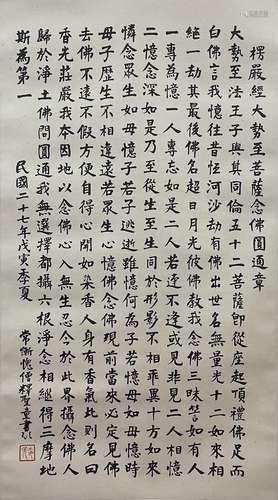 楞嚴經大勢至菩薩念佛圓通章
大勢至法王子與其同倫五十二菩薩即從座起頂禮佛足而
白佛言我憶往昔恒河沙劫有佛出世名無量光十二如來相
繼一劫其最後佛名超日月光彼佛教我念佛三昧譬如有人
一專為憶一人專忘如是二人若逢不逢或見非見二人相憶
二憶念深如是乃至從生至生同於形影不相乖異十方如來
憐念眾生如母憶子若子逃逝雖憶何為子若憶母如母憶時
母子歷生不相違遠若眾生心憶佛念佛現前當來必定見佛
去佛不遠不假方便自得心開如染香人身有香氣此則名曰
香光莊嚴我本因地以念佛心入無生忍今於此界攝念佛人
歸於淨土佛問圓通我無選擇都攝六根淨念相繼得三摩地
斯為第一 民國二十七年戊寅季夏
常慚愧僧釋聖量書